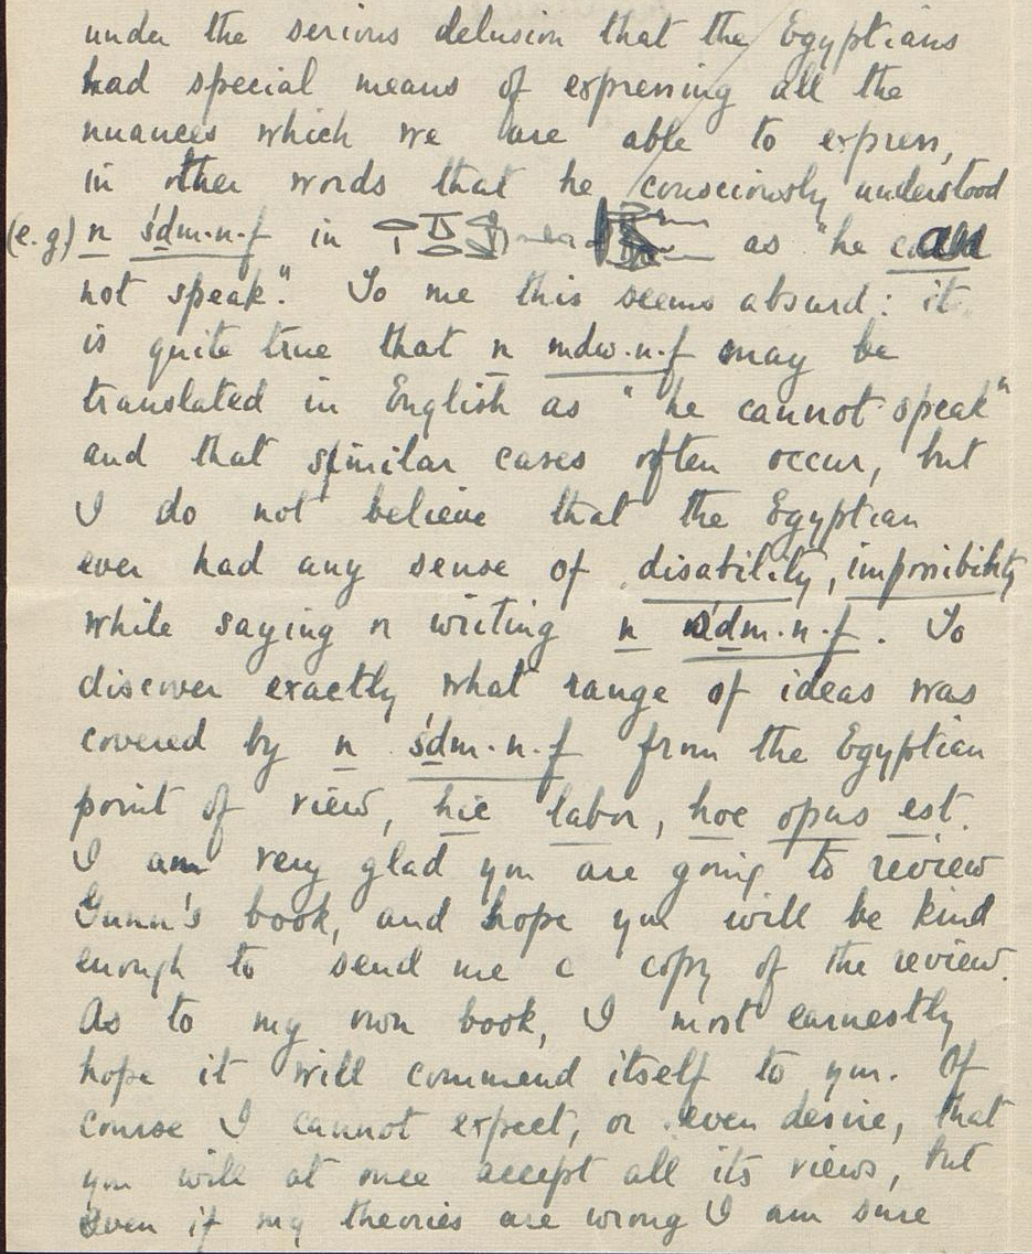 under the serious delusion that the Egyptians
had special means of expressing all the
nuances which we are able to express,
in other words that he consciously understood
(e.g) n śḏm·n·f in as "he can
not speak". To me this seems absurd: it
is quite true that n mdw·n·f may be
translated in English as "he cannot speak"
and that similar cases often occur, but
I do not believe that the Egyptian
ever had any sense of disability, impossibility
while saying or writing n śḏm·n·f. To
discover exactly what range of ideas was
covered by n śḏm·n·f from the Egyptian
point of view, hic labor, hoc opus est.
I am very glad you are going to review
Gunn's book, and hope you will be kind
enough to send me a copy of the review.
As to my own book, I most earnestly
hope it will commend itself to you. Of
course I cannot expect, or even desire, that
you will at once accept all its views, but
even if my theories are wrong I am sure